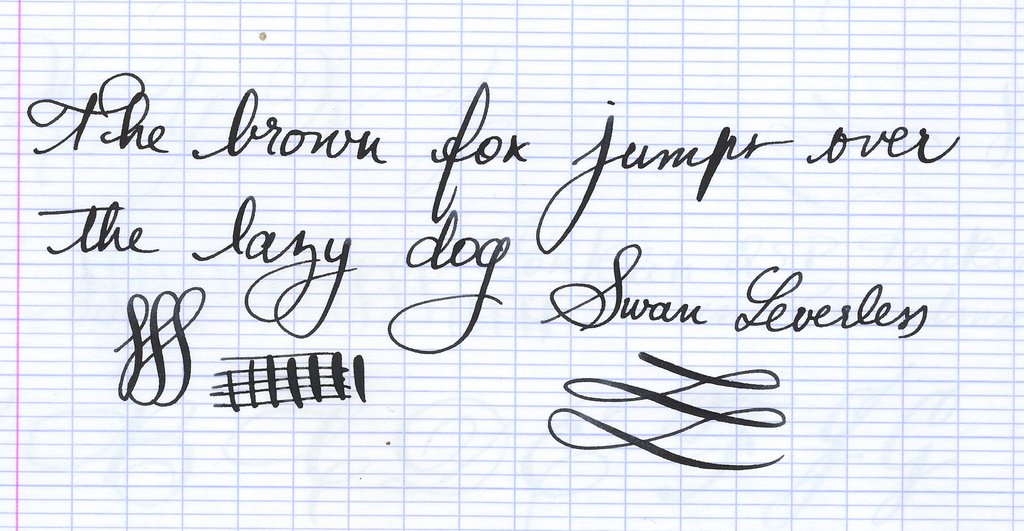 The brown fox jumps over
the lazy dog
Swan Leverless